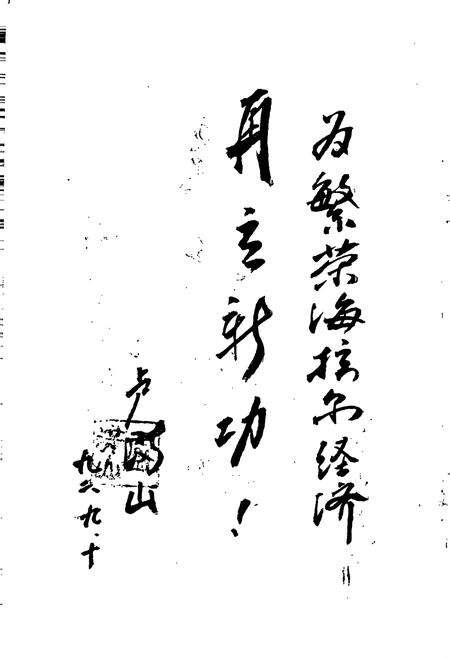 为繁荣海拉尔经济
再立新功！
卢国山
九六.九.十